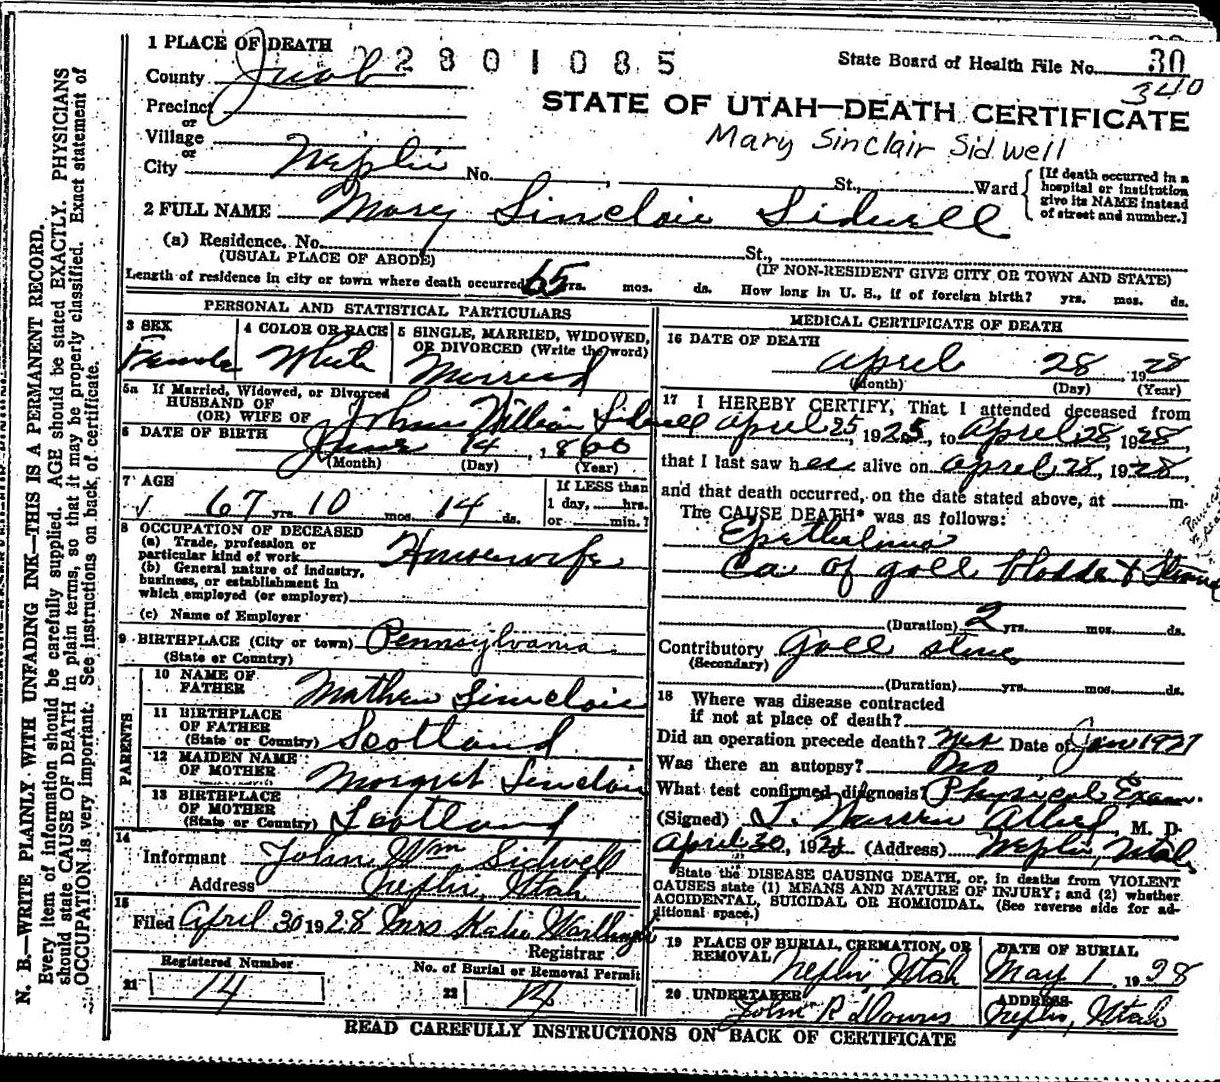 1 PLACE OF DEATH
2801085
State Board of Health File No. 30
340
County Juab
STATE OF UTAH—DEATH CERTIFICATE
Precinct
or
Village
Mary Sinclair Sidwell
or
City Nephi No. , St., Ward
[If death occurred in a
hospital or institution
give its NAME instead
of street and number.]
2 FULL NAME Mary Sinclair Sidwell
(a) Residence. No. St.,
(USUAL PLACE OF ABODE)
(IF NON-RESIDENT GIVE CITY OR TOWN AND STATE)
Length of residence in city or town where death occurred 65 yrs. mos. ds. How long in U. S., if of foreign birth? yrs. mos. ds.
PERSONAL AND STATISTICAL PARTICULARS
3 SEX
Female
4 COLOR OR RACE
White
5 SINGLE, MARRIED, WIDOWED,
OR DIVORCED (Write the word)
Married
5a If Married, Widowed, or Divorced
HUSBAND OF
(OR) WIFE OF John William Sidwell
6 DATE OF BIRTH June 14, 1860
(Month) (Day) (Year)
7 AGE
67 yrs. 10 mos. 14 ds.
If LESS than
1 day, hrs.
or min.?
8 OCCUPATION OF DECEASED
(a) Trade, profession or
particular kind of work Housewife
(b) General nature of industry,
business, or establishment in
which employed (or employer)
(c) Name of Employer
9 BIRTHPLACE (City or town) Pennsylvania
(State or Country)
PARENTS
10 NAME OF
FATHER Mathew Sinclair
11 BIRTHPLACE
OF FATHER
(State or Country) Scotland
12 MAIDEN NAME
OF MOTHER Morgret Sinclair
13 BIRTHPLACE
OF MOTHER
(State or Country) Scotland
14
Informant John Wm Sidwell
Address Nephi, Utah
15
Filed April 30 1928 Mrs Katie
Registrar
Registered Number
21 14
No. of Burial or Removal Permit
22 14
MEDICAL CERTIFICATE OF DEATH
16 DATE OF DEATH
April 28 1928
(Month) (Day) (Year)
17 I HEREBY CERTIFY, That I attended deceased from
April 25, 1925, to April 28, 1928,
that I last saw her alive on April 28, 1928,
and that death occurred, on the date stated above, at m.
The CAUSE DEATH* was as follows:
Epithelioma
Ca of gall bladder &
(Duration) 2 yrs. mos. ds.
Contributory Gall stones
(Secondary)
(Duration) yrs. mos. ds.
18 Where was disease contracted
if not at place of death?
Did an operation precede death? Date of Jan 1927
Was there an autopsy? no
What test confirmed diagnosis? Physical Exam.
(Signed) T. Warren Allred M. D.
April 30, 1928 (Address) Nephi, Utah
State the DISEASE CAUSING DEATH, or, in deaths from VIOLENT
CAUSES state (1) MEANS AND NATURE OF INJURY; and (2) whether
ACCIDENTAL, SUICIDAL OR HOMICIDAL. (See reverse side for ad-
ditional space.)
19 PLACE OF BURIAL, CREMATION, OR
REMOVAL Nephi, Utah
DATE OF BURIAL
May 1, 1928
20 UNDERTAKER
John R Downs
ADDRESS
Nephi, Utah
READ CAREFULLY INSTRUCTIONS ON BACK OF CERTIFICATE
N. B.—WRITE PLAINLY WITH UNFADING INK—THIS IS A PERMANENT RECORD.
Every item of information should be carefully supplied. AGE should be stated EXACTLY. PHYSICIANS
should state CAUSE OF DEATH in plain terms, so that it may be properly classified. Exact statement of
OCCUPATION is very important. See instructions on back of certificate.